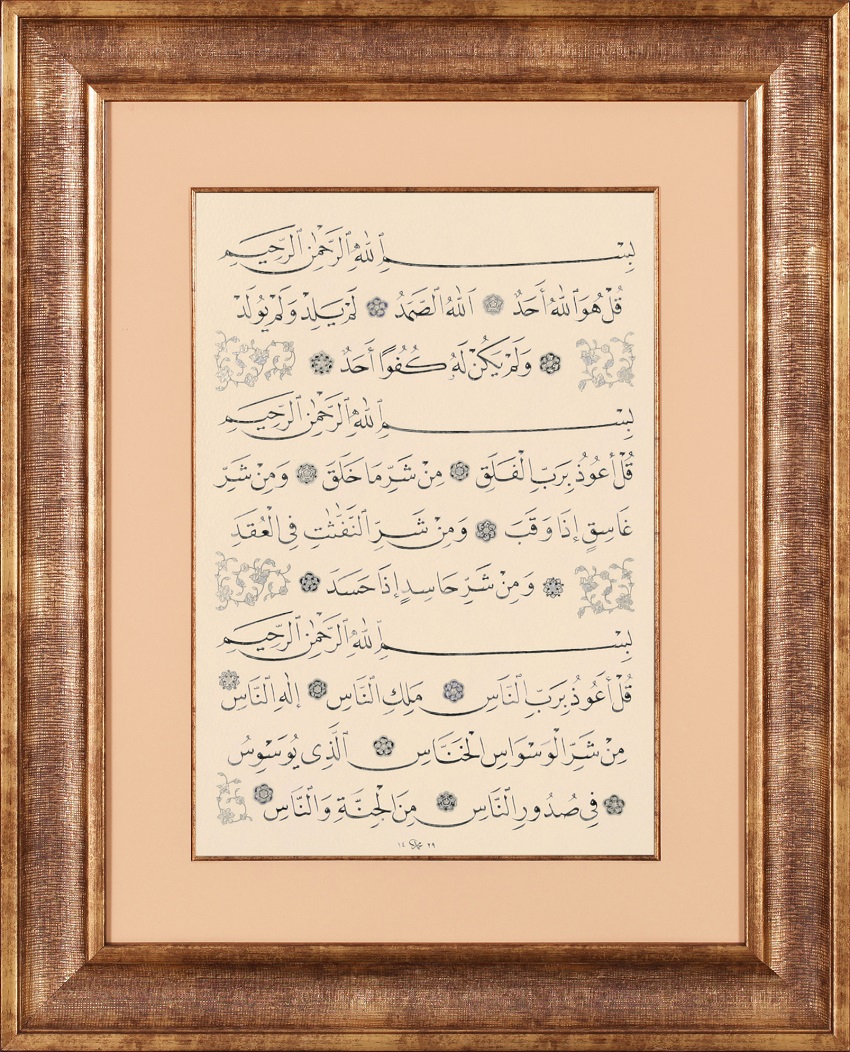 بِسْمِ ٱللهِ ٱلرَّحْمٰنِ ٱلرَّحِيمِ
قُلْ هُوَ ٱللهُ أَحَدٌ ٱللهُ ٱلصَّمَدُ لَمْ يَلِدْ وَلَمْ يُولَدْ
وَلَمْ يَكُنْ لَهُ كُفُوًا أَحَدٌ
بِسْمِ ٱللهِ ٱلرَّحْمٰنِ ٱلرَّحِيمِ
قُلْ أَعُوذُ بِرَبِّ ٱلْفَلَقِ مِنْ شَرِّ مَا خَلَقَ وَمِنْ شَرِّ
غَاسِقٍ إِذَا وَقَبَ وَمِنْ شَرِّ ٱلنَّفّٰثٰتِ فِى ٱلْعُقَدِ
وَمِنْ شَرِّ حَاسِدٍ إِذَا حَسَدَ
بِسْمِ ٱللهِ ٱلرَّحْمٰنِ ٱلرَّحِيمِ
قُلْ أَعُوذُ بِرَبِّ ٱلنَّاسِ مَلِكِ ٱلنَّاسِ إِلٰهِ ٱلنَّاسِ
مِنْ شَرِّ ٱلْوَسْوَاسِ ٱلْخَنَّاسِ ٱلَّذِى يُوَسْوِسُ
فِى صُدُورِ ٱلنَّاسِ مِنَ ٱلْجِنَّةِ وَٱلنَّاسِ
٢٩ ١٤